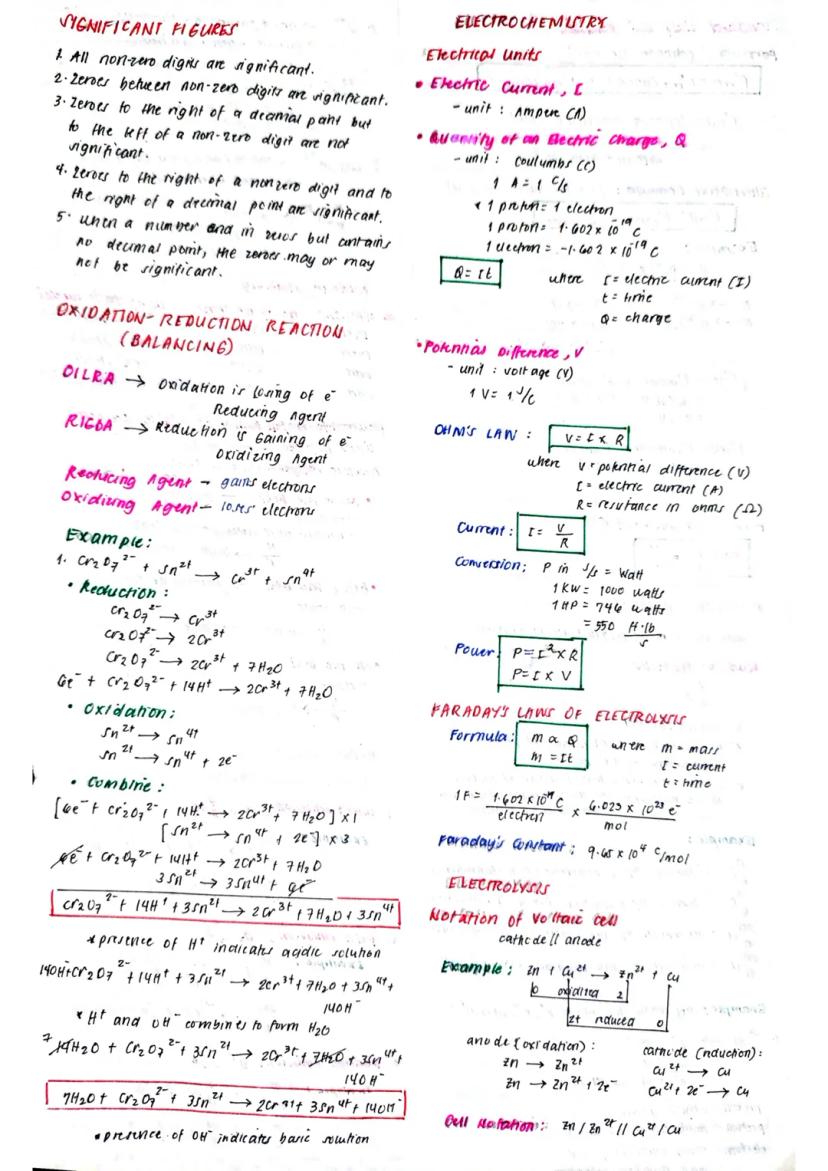 SIGNIFICANT FIGURES
1. All non-zero digits are significant.
2. Zeroes between non-zero digits are significant.
3. Zeroes to the right of a decimal point but
to the left of a non-zero digit are not
significant.
4. Zeroes to the right of a nonzero digit and to
the right of a decimal point are significant.
5. When a number end in zeros but contains
no decimal point, the zeroes may or may
not be significant.
OXIDATION-REDUCTION REACTION
(BALANCING)
OILRA → Oxidation is losing of e⁻
Reducing Agent
RIGOA → Reduction is Gaining of e⁻
Oxidizing Agent
Reducing Agent - gains electrons
Oxidizing Agent - loses electrons
Example:
1. Cr₂O₇²⁻ + Sn²⁺ → Cr³⁺ + Sn⁴⁺
• Reduction:
Cr₂O₇²⁻ → Cr³⁺
Cr₂O₇²⁻ → 2Cr³⁺
Cr₂O₇²⁻ → 2Cr³⁺ + 7H₂O
6e⁻ + Cr₂O₇²⁻ + 14H⁺ → 2Cr³⁺ + 7H₂O
• Oxidation:
Sn²⁺ → Sn⁴⁺
Sn²⁺ → Sn⁴⁺ + 2e⁻
• Combine:
[6e⁻ + Cr₂O₇²⁻ + 14H⁺ → 2Cr³⁺ + 7H₂O] x 1
[Sn²⁺ → Sn⁴⁺ + 2e⁻] x 3
6e⁻ + Cr₂O₇²⁻ + 14H⁺ → 2Cr³⁺ + 7H₂O
3Sn²⁺ → 3Sn⁴⁺ + 6e⁻
Cr₂O₇²⁻ + 14H⁺ + 3Sn²⁺ → 2Cr³⁺ + 7H₂O + 3Sn⁴⁺
*presence of H⁺ indicates acidic solution
14OH⁻ + Cr₂O₇²⁻ + 14H⁺ + 3Sn²⁺ → 2Cr³⁺ + 7H₂O + 3Sn⁴⁺ +
14OH⁻
*H⁺ and OH⁻ combines to form H₂O
7 14H₂O + Cr₂O₇²⁻ + 3Sn²⁺ → 2Cr³⁺ + 7H₂O + 3Sn⁴⁺ +
14OH⁻
7H₂O + Cr₂O₇²⁻ + 3Sn²⁺ → 2Cr³⁺ + 3Sn⁴⁺ + 14OH⁻
*presence of OH⁻ indicates basic solution
ELECTROCHEMISTRY
Electrical Units
• Electric Current, I
- unit : Ampere (A)
• Quantity of an Electric Charge, Q
- unit : Coulumbs (C)
1 A = 1 C/s
* 1 proton = 1 electron
1 proton = 1.602 x 10⁻¹⁹ C
1 electron = -1.602 x 10⁻¹⁹ C
Q = It
where I = electric current (I)
t = time
Q = charge
• Potential Difference, V
- unit : voltage (V)
1 V = 1 J/C
OHM'S LAW : V = I x R
where V = potential difference (V)
I = electric current (A)
R = resistance in ohms (Ω)
Current : I = V/R
Conversion; P in J/s = Watt
1 KW = 1000 watts
1 HP = 746 watts
= 550 ft·lb/s
Power: P = I² x R
P = I x V
FARADAY'S LAWS OF ELECTROLYSIS
Formula: m ∝ Q
m = It
where m = mass
I = current
t = time
1 F = 1.602 x 10⁻¹⁹ C/electron x 6.023 x 10²³ e⁻/mol
Faraday's Constant ; 9.65 x 10⁴ C/mol
ELECTROLYSIS
Notation of Voltaic cell
cathode || anode
Example : Zn + Cu²⁺ → Zn²⁺ + Cu
0 oxidized 2
2+ reduced 0
anode (oxidation) :
Zn → Zn²⁺
Zn → Zn²⁺ + 2e⁻
cathode (reduction) :
Cu²⁺ → Cu
Cu²⁺ + 2e⁻ → Cu
Cell Notation : Zn / Zn²⁺ // Cu²⁺ / Cu